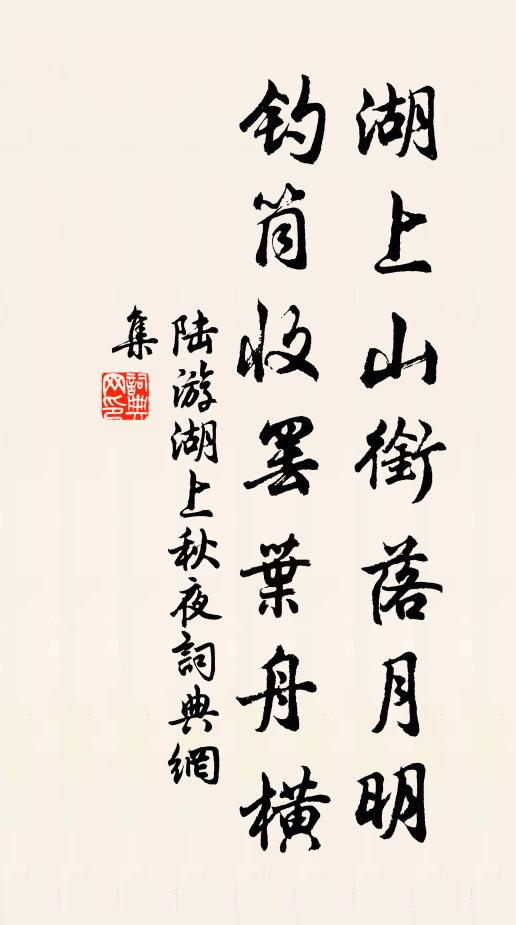 湖上山銜落月明
钓筒收罢葉舟橫
陆游湖上秋夜詞典網
集
詞典网印